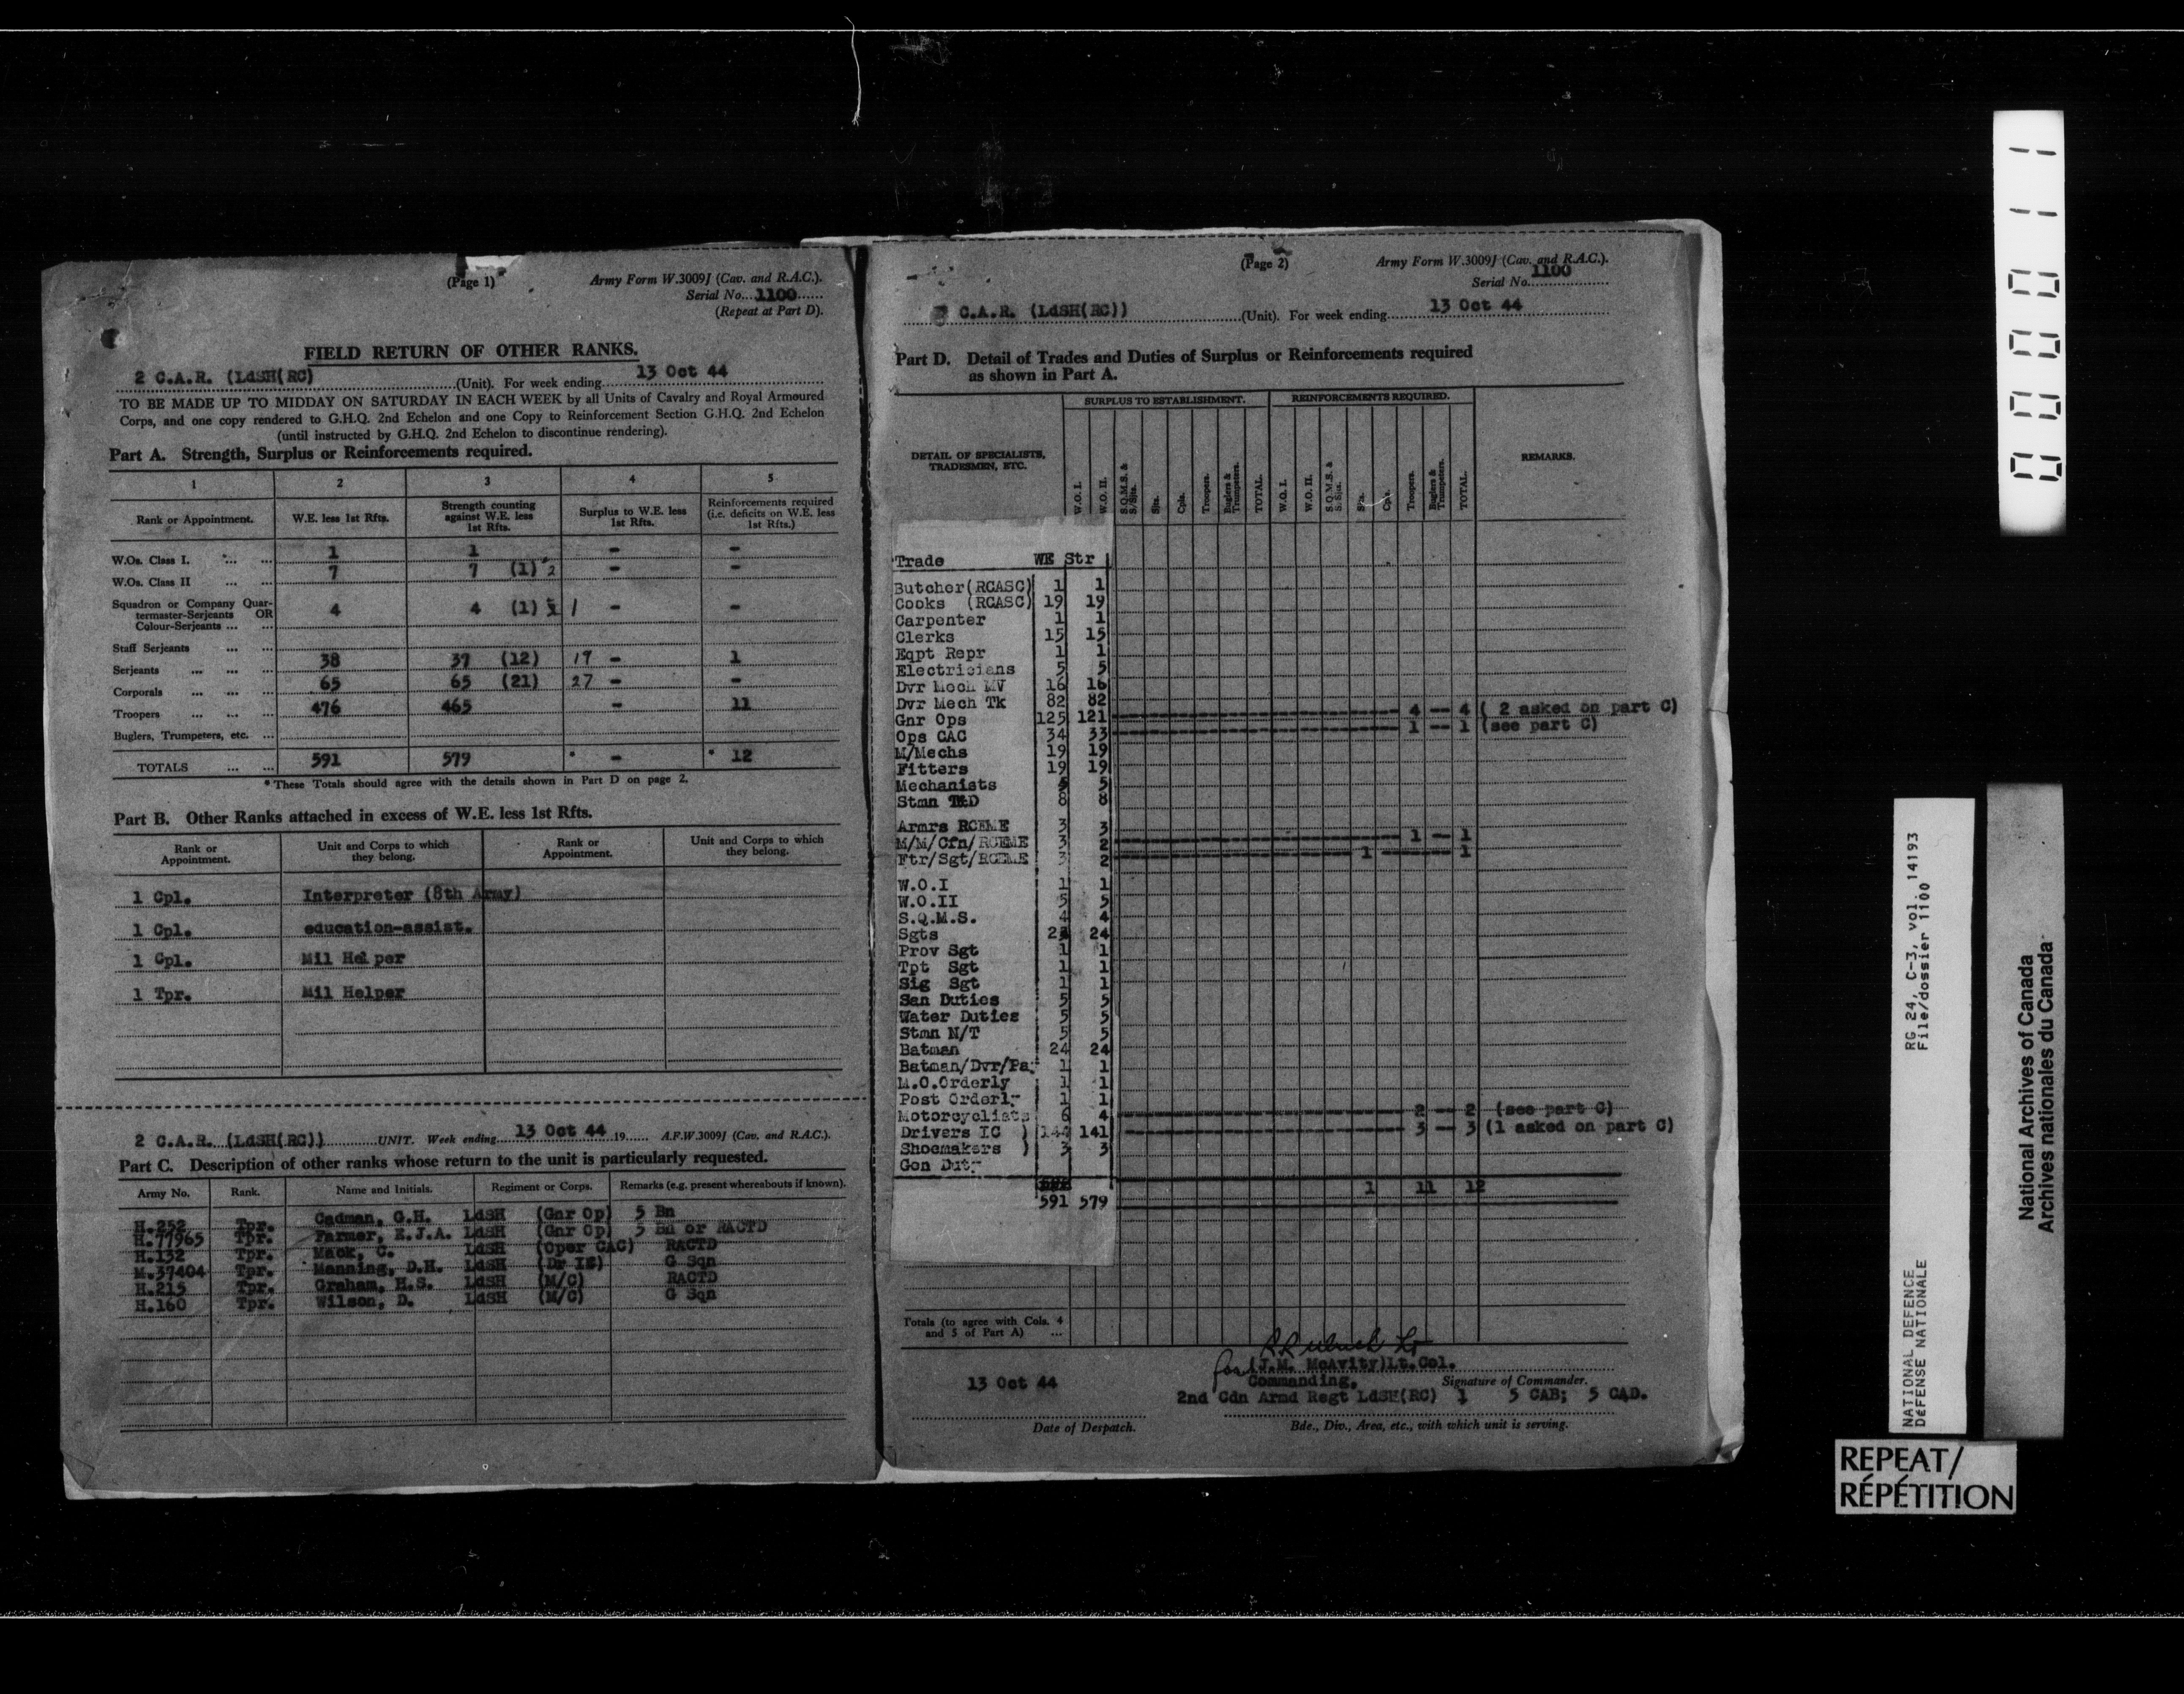 (Page 1)
Army Form W.3009J (Cav. and R.A.C.).
Serial No....1100......
(Repeat at Part D).
FIELD RETURN OF OTHER RANKS.
2 C.A.R. (LdSH(RC) (Unit). For week ending 13 Oct 44
TO BE MADE UP TO MIDDAY ON SATURDAY IN EACH WEEK by all Units of Cavalry and Royal Armoured
Corps, and one copy rendered to G.H.Q. 2nd Echelon and one Copy to Reinforcement Section G.H.Q. 2nd Echelon
(until instructed by G.H.Q. 2nd Echelon to discontinue rendering).
Part A. Strength, Surplus or Reinforcements required.
1 2 3 4 5
Rank or Appointment. W.E. less 1st Rfts. Strength counting against W.E. less 1st Rfts. Surplus to W.E. less 1st Rfts. Reinforcements required (i.e. deficits on W.E. less 1st Rfts.)
W.Os. Class I. ... ... 1 1 - -
W.Os. Class II ... ... 7 7 (1) 2 - -
Squadron or Company Quar-
termaster-Serjeants OR 4 4 (1) 1 - -
Colour-Serjeants ... ...
Staff Serjeants ... ...
Serjeants ... ... ... 38 37 (12) 19 - 1
Corporals ... ... ... 65 65 (21) 27 - -
Troopers ... ... ... 476 465 - 11
Buglers, Trumpeters, etc. ...
TOTALS ... ... 591 579 * - * 12
* These Totals should agree with the details shown in Part D on page 2.
Part B. Other Ranks attached in excess of W.E. less 1st Rfts.
Rank or Appointment. Unit and Corps to which they belong. Rank or Appointment. Unit and Corps to which they belong.
1 Cpl. Interpreter (8th Army)
1 Cpl. education-assist.
1 Cpl. Mil Helper
1 Tpr. Mil Helper
2 C.A.R. (LdSH(RC)) UNIT. Week ending 13 Oct 44 19...... A.F.W.3009J (Cav. and R.A.C.).
Part C. Description of other ranks whose return to the unit is particularly requested.
Army No. Rank. Name and Initials. Regiment or Corps. Remarks (e.g. present whereabouts if known).
H.252 Tpr. Cadman, G.H. LdSH (Gnr Op) 5 Bn
H.77965 Tpr. Farmer, E.J.A. LdSH (Gnr Op) 5 Bn or RACTD
H.132 Tpr. Mack, C. LdSH (Oper CAC) RACTD
M.37404 Tpr. Manning, D.H. LdSH (Dr IC) G Sqn
H.215 Tpr. Graham, H.S. LdSH (M/C) RACTD
H.160 Tpr. Wilson, D. LdSH (M/C) G Sqn
(Page 2)
Army Form W.3009J (Cav. and R.A.C.).
Serial No. 1100
C.A.R. (LdSH(RC)) (Unit). For week ending 13 Oct 44
Part D. Detail of Trades and Duties of Surplus or Reinforcements required
as shown in Part A.
DETAIL OF SPECIALISTS, TRADESMEN, ETC. SURPLUS TO ESTABLISHMENT. REINFORCEMENTS REQUIRED. REMARKS.
W.O. I. W.O. II. S.Q.M.S. & S/Sjts. Sjts. Cpls. Troopers. Buglers & Trumpeters. TOTAL. W.O. I. W.O. II. S.Q.M.S. & S/Sjts. Sjts. Cpls. Troopers. Buglers & Trumpeters. TOTAL.
Trade WE Str
Butcher(RCASC) 1 1
Cooks (RCASC) 19 19
Carpenter 1 1
Clerks 15 15
Eqpt Repr 1 1
Electricians 5 5
Dvr Mech MV 16 16
Dvr Mech Tk 82 82
Gnr Ops 125 121 4 -- 4 ( 2 asked on part C)
Ops CAC 34 33 1 -- 1 (see part C)
M/Mechs 19 19
Fitters 19 19
Mechanists 5 5
Stmn T&D 8 8
Armrs RCEME 3 3
M/M/Cfn/RCEME 3 2 1 -- 1
Ftr/Sgt/RCEME 3 2 1 1
W.O.I 1 1
W.O.II 5 5
S.Q.M.S. 4 4
Sgts 24 24
Prov Sgt 1 1
Tpt Sgt 1 1
Sig Sgt 1 1
San Duties 5 5
Water Duties 5 5
Stmn N/T 5 5
Batman 24 24
Batman/Dvr/Pa 1 1
M.O.Orderly 1 1
Post Orderly 1 1
Motorcyclists 6 4 2 -- 2 (see part C)
Drivers IC ) 144 141 3 -- 3 (1 asked on part C)
Shoemakers ) 3 3
Gen Duty
1 11 12
591 579
Totals (to agree with Cols. 4
and 5 of Part A) ...
for (J.M. McAvity)Lt.Col.
Commanding, Signature of Commander.
13 Oct 44
2nd Cdn Armd Regt LdSH(RC) 1 5 CAB; 5 CAD.
Date of Despatch.
Bde., Div., Area, etc., with which unit is serving.
000011
RG 24, C-3, vol. 14193
File/dossier 1100
NATIONAL DEFENCE
DÉFENSE NATIONALE
National Archives of Canada
Archives nationales du Canada
REPEAT/
RÉPÉTITION